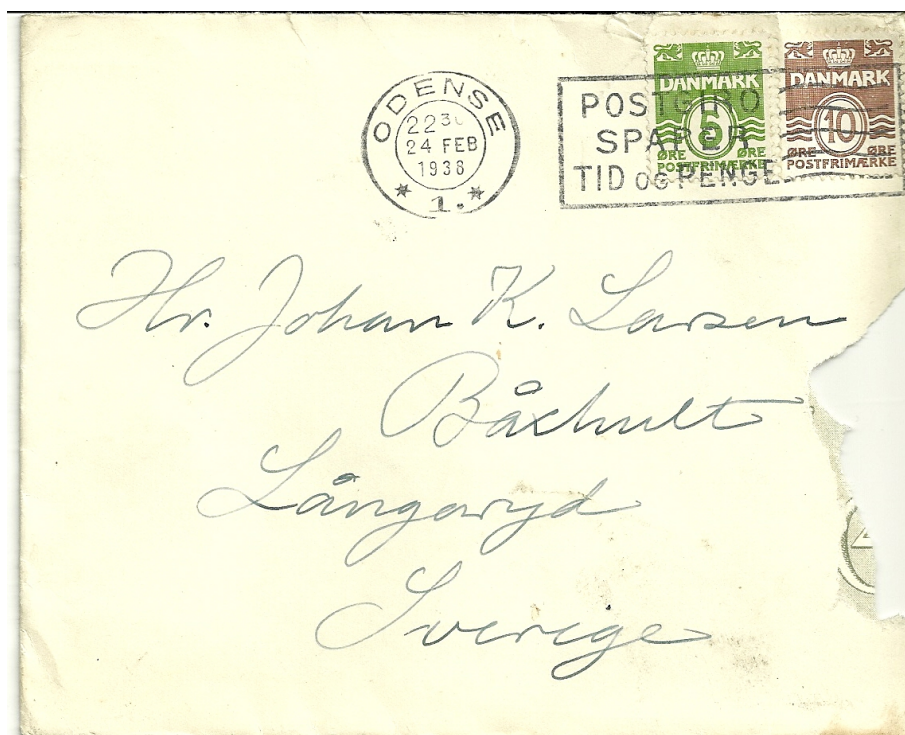 ODENSE
22 30
24 FEB
1938
* 1. *
POSTGIRO
SPARER
TID OG PENGE
DANMARK
5
ØRE ØRE
POSTFRIMÆRKE
DANMARK
10
ØRE ØRE
POSTFRIMÆRKE
Hr. Johan K. Larsen
Båxhult
Långaryd
Sverige